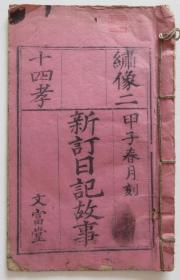 甲子春月刻
繡像二
十四孝
新訂日記故事
文富堂